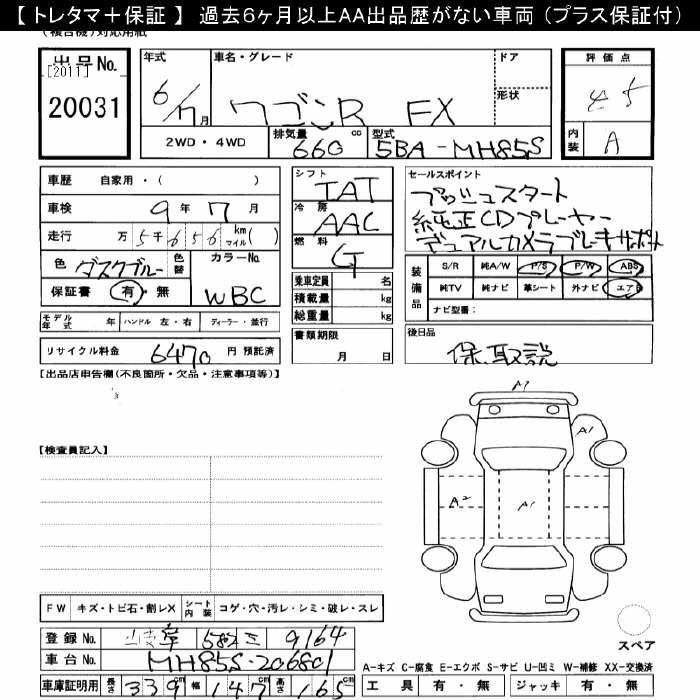 【 トレタマ＋保証 】 過去6ヶ月以上AA出品歴がない車両（プラス保証付）
(複合機)対応用紙
出品No.
[2011]
20031
年式
6/7月
車名・グレード
ワゴンR FX
ドア
形状
評価点
4.5
内装
A
2WD・4WD
排気量
660 cc
型式
5BA-MH85S
車歴 自家用・( )
車検 9年 7月
走行 万 5千 6 5 6 km マイル( )
色 ダスクブルー
色替
カラーNo.
WBC
保証書 有・無
シフト
IAT
冷房
AAC
燃料
G
乗車定員 名
積載量 kg
総重量 kg
セールスポイント
プッシュスタート
純正CDプレーヤー
デュアルカメラブレーキサポート
装備品
S/R 純A/W P/S P/W ABS
純TV 純ナビ 革シート 外ナビ エアB
ナビ型番：
モデル年式 年 ハンドル 左・右 ディーラー・並行
リサイクル料金 6470 円 預託済
書類期限
月 日
後日品
保、取説
【出品店申告欄(不良箇所・欠品・注意事項等)】
【検査員記入】
A1
A1
A2
A1
FW キズ・トビ石・割レX シート内装 コゲ・穴・汚レ・シミ・破レ・スレ
登録No. 582 9164
車台No. MH85S-206801
車庫証明用 長さ 339cm 幅 147cm 高さ 165cm
スペア
A-キズ C-腐食 E-エクボ S-サビ U-凹ミ W-補修 XX-交換済
工具 有・無 ジャッキ 有・無